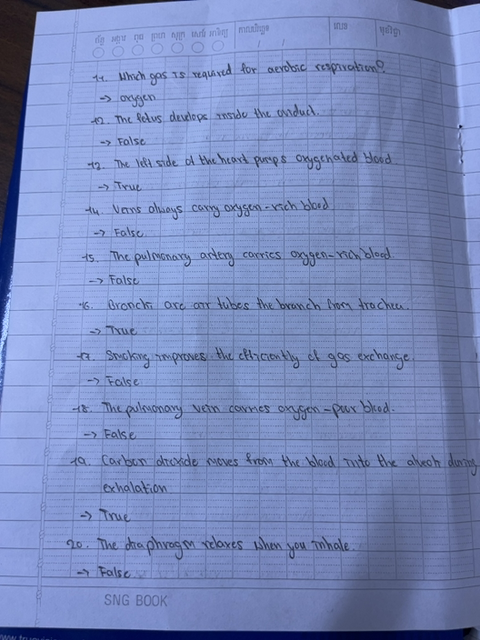 ច័ន្ទ អង្គារ ពុធ ព្រហ សុក្រ សៅរ៍ អាទិត្យ
11. Which gas is required for aerobic respiration?
-> oxygen
12. The fetus develops inside the oviduct.
-> False
13. The left side of the heart pumps oxygenated blood
-> True
14. Veins always carry oxygen-rich blood
-> False
15. The pulmonary artery carries oxygen-rich blood
-> False
16. Bronchi are air tubes the branch from trachea.
-> True
17. Smoking improves the efficiently of gas exchange.
-> False
18. The pulmonary vein carries oxygen-poor blood.
-> False
19. Carbon dioxide moves from the blood into the alveoli during
exhalation
-> True
20. The diaphragm relaxes when you inhale.
-> False
SNG BOOK